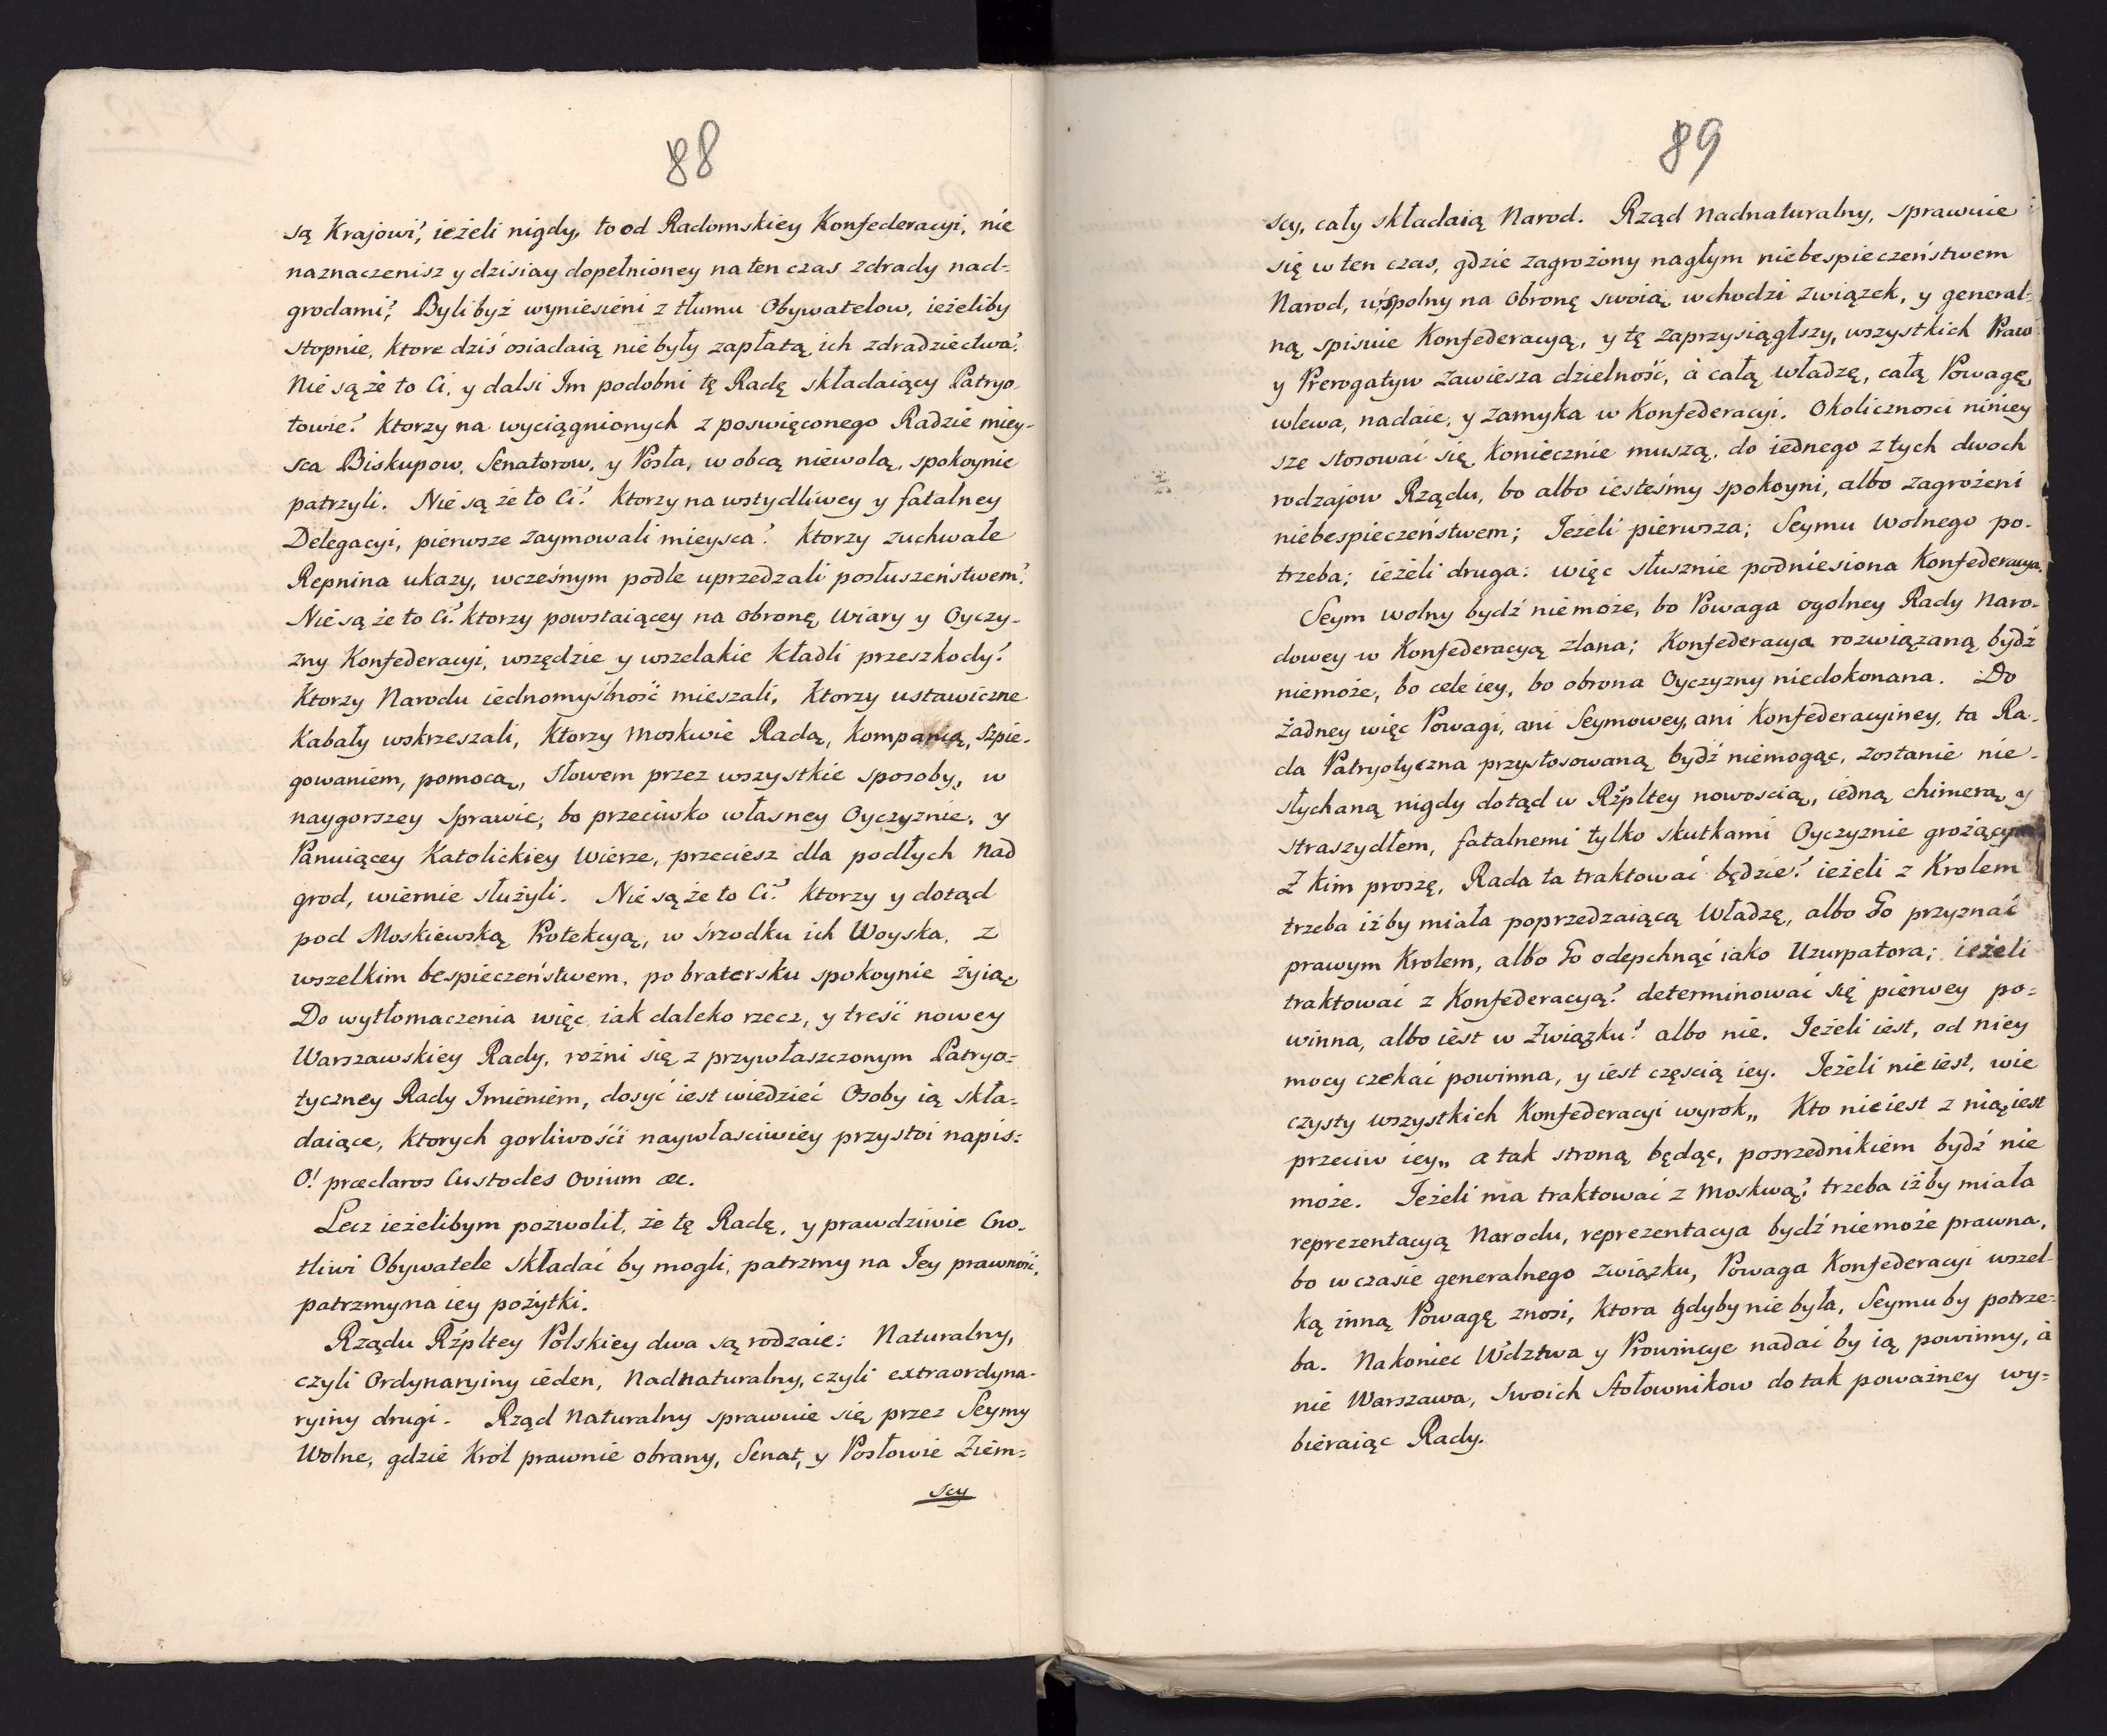 88
są Krajowi, ieżeli nigdy, to od Radomskiey Konfederacyi, nie
naznaczenisz y dzisiay dopełnioney na ten czas zdrady nad=
grodami? Byli byż wyniesieni z tłumu Obywatelow, ieżeliby
stopnie, ktore dziś osiadaią nie były zapłatą ich zdradziectwa?
Nie są że to Ci, y dalsi Im podobni tę Radę składaiący Patryo
towie? ktorzy na wyciągnionych z poswięconego Radzie miey-
sca Biskupow, Senatorow, y Posła, w obcą niewolą, spokoynie
patrzyli. Nie są że to Ci? ktorzy na wstydliwey y fatalney
Delegacyi, pierwsze zaymowali mieysca? ktorzy zuchwałe
Repnina ukazy, wcześnym podle uprzedzali posłuszeństwem?
Nie są że to Ci? ktorzy powstaiącey na obronę, Wiary y Oyczy-
zny Konfederacyi, wszędzie y wszelakie kładli przeszkody?
Ktorzy Narodu iednomyślność mieszali, Ktorzy ustawiczne
Kabały wskrzeszali, Ktorzy Moskwie Radą, Kompanią, szpie-
gowaniem, pomocą, słowem przez wszystkie sposoby, w
naygorszey sprawie, bo przeciwko własney Oyczyznie, y
Panuiącey Katolickiey Wierze, przeciesz dla podłych Nad
grod, wiernie służyli. Nie są że to Ci? ktorzy y dotąd
pod Moskiewską Protekcyą, w śrzodku ich Woyska, z
wszelkim bespieczeństwem, po bratersku spokoynie żyią,
Do wytłomaczenia więc iak daleko rzecz, y treść nowey
Warszawskiey Rady, rożni się z przywłaszczonym Patryo=
tyczney Rady Imieniem, dosyć iest wiedzieć Osoby ią skła=
daiące, ktorych gorliwości naywłasciwiey przystoi napis=
O! præclaros Custodes Ovium &c.
Lecz ieżelibym pozwolił, że tę Radę, y prawdziwie Cno-
tliwi Obywatele składać by mogli, patrzmy na Jey prawność,
patrzmy na iey pożytki.
Rządu Rżpltey Polskiey dwa są rodzaie: Naturalny,
czyli Ordynaryiny ieden, Nadnaturalny, czyli extraordyna-
ryiny drugi. Rząd Naturalny sprawuie się przez Seymy
Wolne, gdzie Krol prawnie obrany, Senat, y Posłowie Ziem=
scy
89
scy, cały składaią Narod. Rząd Nadnaturalny, sprawuie
się w ten czas, gdzie zagrożony nagłym niebespieczeństwem
Narod, wspolny na obronę swoią wchodzi Związek, y general=
ną spisuie Konfederacyą, y tę zaprzysiągłszy, wszystkich Praw
y Prerogatyw zawiesza dzielność, à całą władzę, całą Powagę,
wlewa, nadaie, y zamyka w Konfederacyi. Okolicznosci niniey
sze stosować się koniecznie muszą, do iednego z tych dwoch
rodzajow Rządu, bo albo iesteśmy spokoyni, albo zagrożeni
niebespieczeństwem; Jeżeli pierwsza; Seymu Wolnego po-
trzeba; ieżeli druga: więc słusznie podniesiona Konfederacya.
Seym wolny bydź niemoże, bo Powaga ogolney Rady Naro-
dowey w Konfederacyą zlana; Konfederacya rozwiązaną bydź
niemoże, bo cele iey, bo obrona Oyczyzny niedokonana. Do
żadney więc Powagi, ani Seymowey, ani Konfederacyiney, ta Ra-
da Patryotyczna przystosowaną bydź niemogąc, zostanie nie-
słychaną nigdy dotąd w Rżpltey nowoscią, iedną chimerą y
straszydłem, fatalnemi tylko skutkami Oyczyznie grożącym
Z kim proszę, Rada ta traktować będzie? ieżeli z Krolem
trzeba iżby miała poprzedzaiącą Władzę, albo Go przyznać
prawym Krolem, albo Go odepchnąć iako Uzurpatora; ieżeli
traktować z Konfederacyą? determinować się pierwey po=
winna, albo iest w Związku? albo nie. Jeżeli iest, od niey
mocy czekać powinna, y iest częscią iey. Jeżeli nie iest, wie
czysty wszystkich Konfederacyi wyrok„ Kto nie iest z nią, iest
przeciw iey„ a tak stroną będąc, posrzednikiem bydź nie
może. Jeżeli ma traktować z Moskwą? trzeba iżby miała
reprezentacyą Narodu, reprezentacya bydź niemoże prawna,
bo w czasie generalnego związku, Powaga Konfederacyi wszel-
ką inną Powagę znosi, ktora gdyby nie była, Seymu by potrze=
ba. Nakoniec Wdztwa y Prowincye nadać by ią powinny, à
nie Warszawa, swoich Stołownikow do tak poważney wy=
bieraiąc Rady.